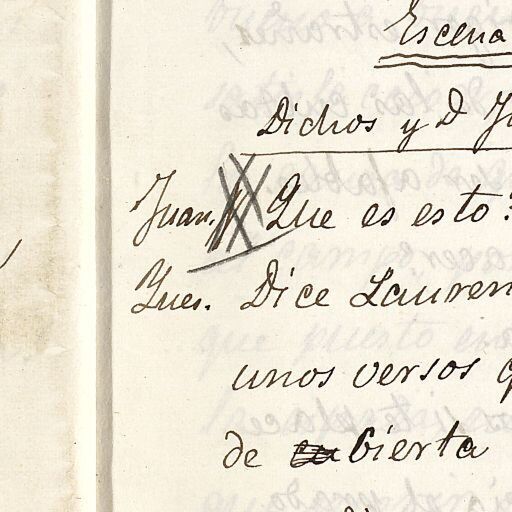 Escena
Dichos y D Ju
Juan. Que es esto?
Ynes. Dice Lauren
unos versos q
de cubierta